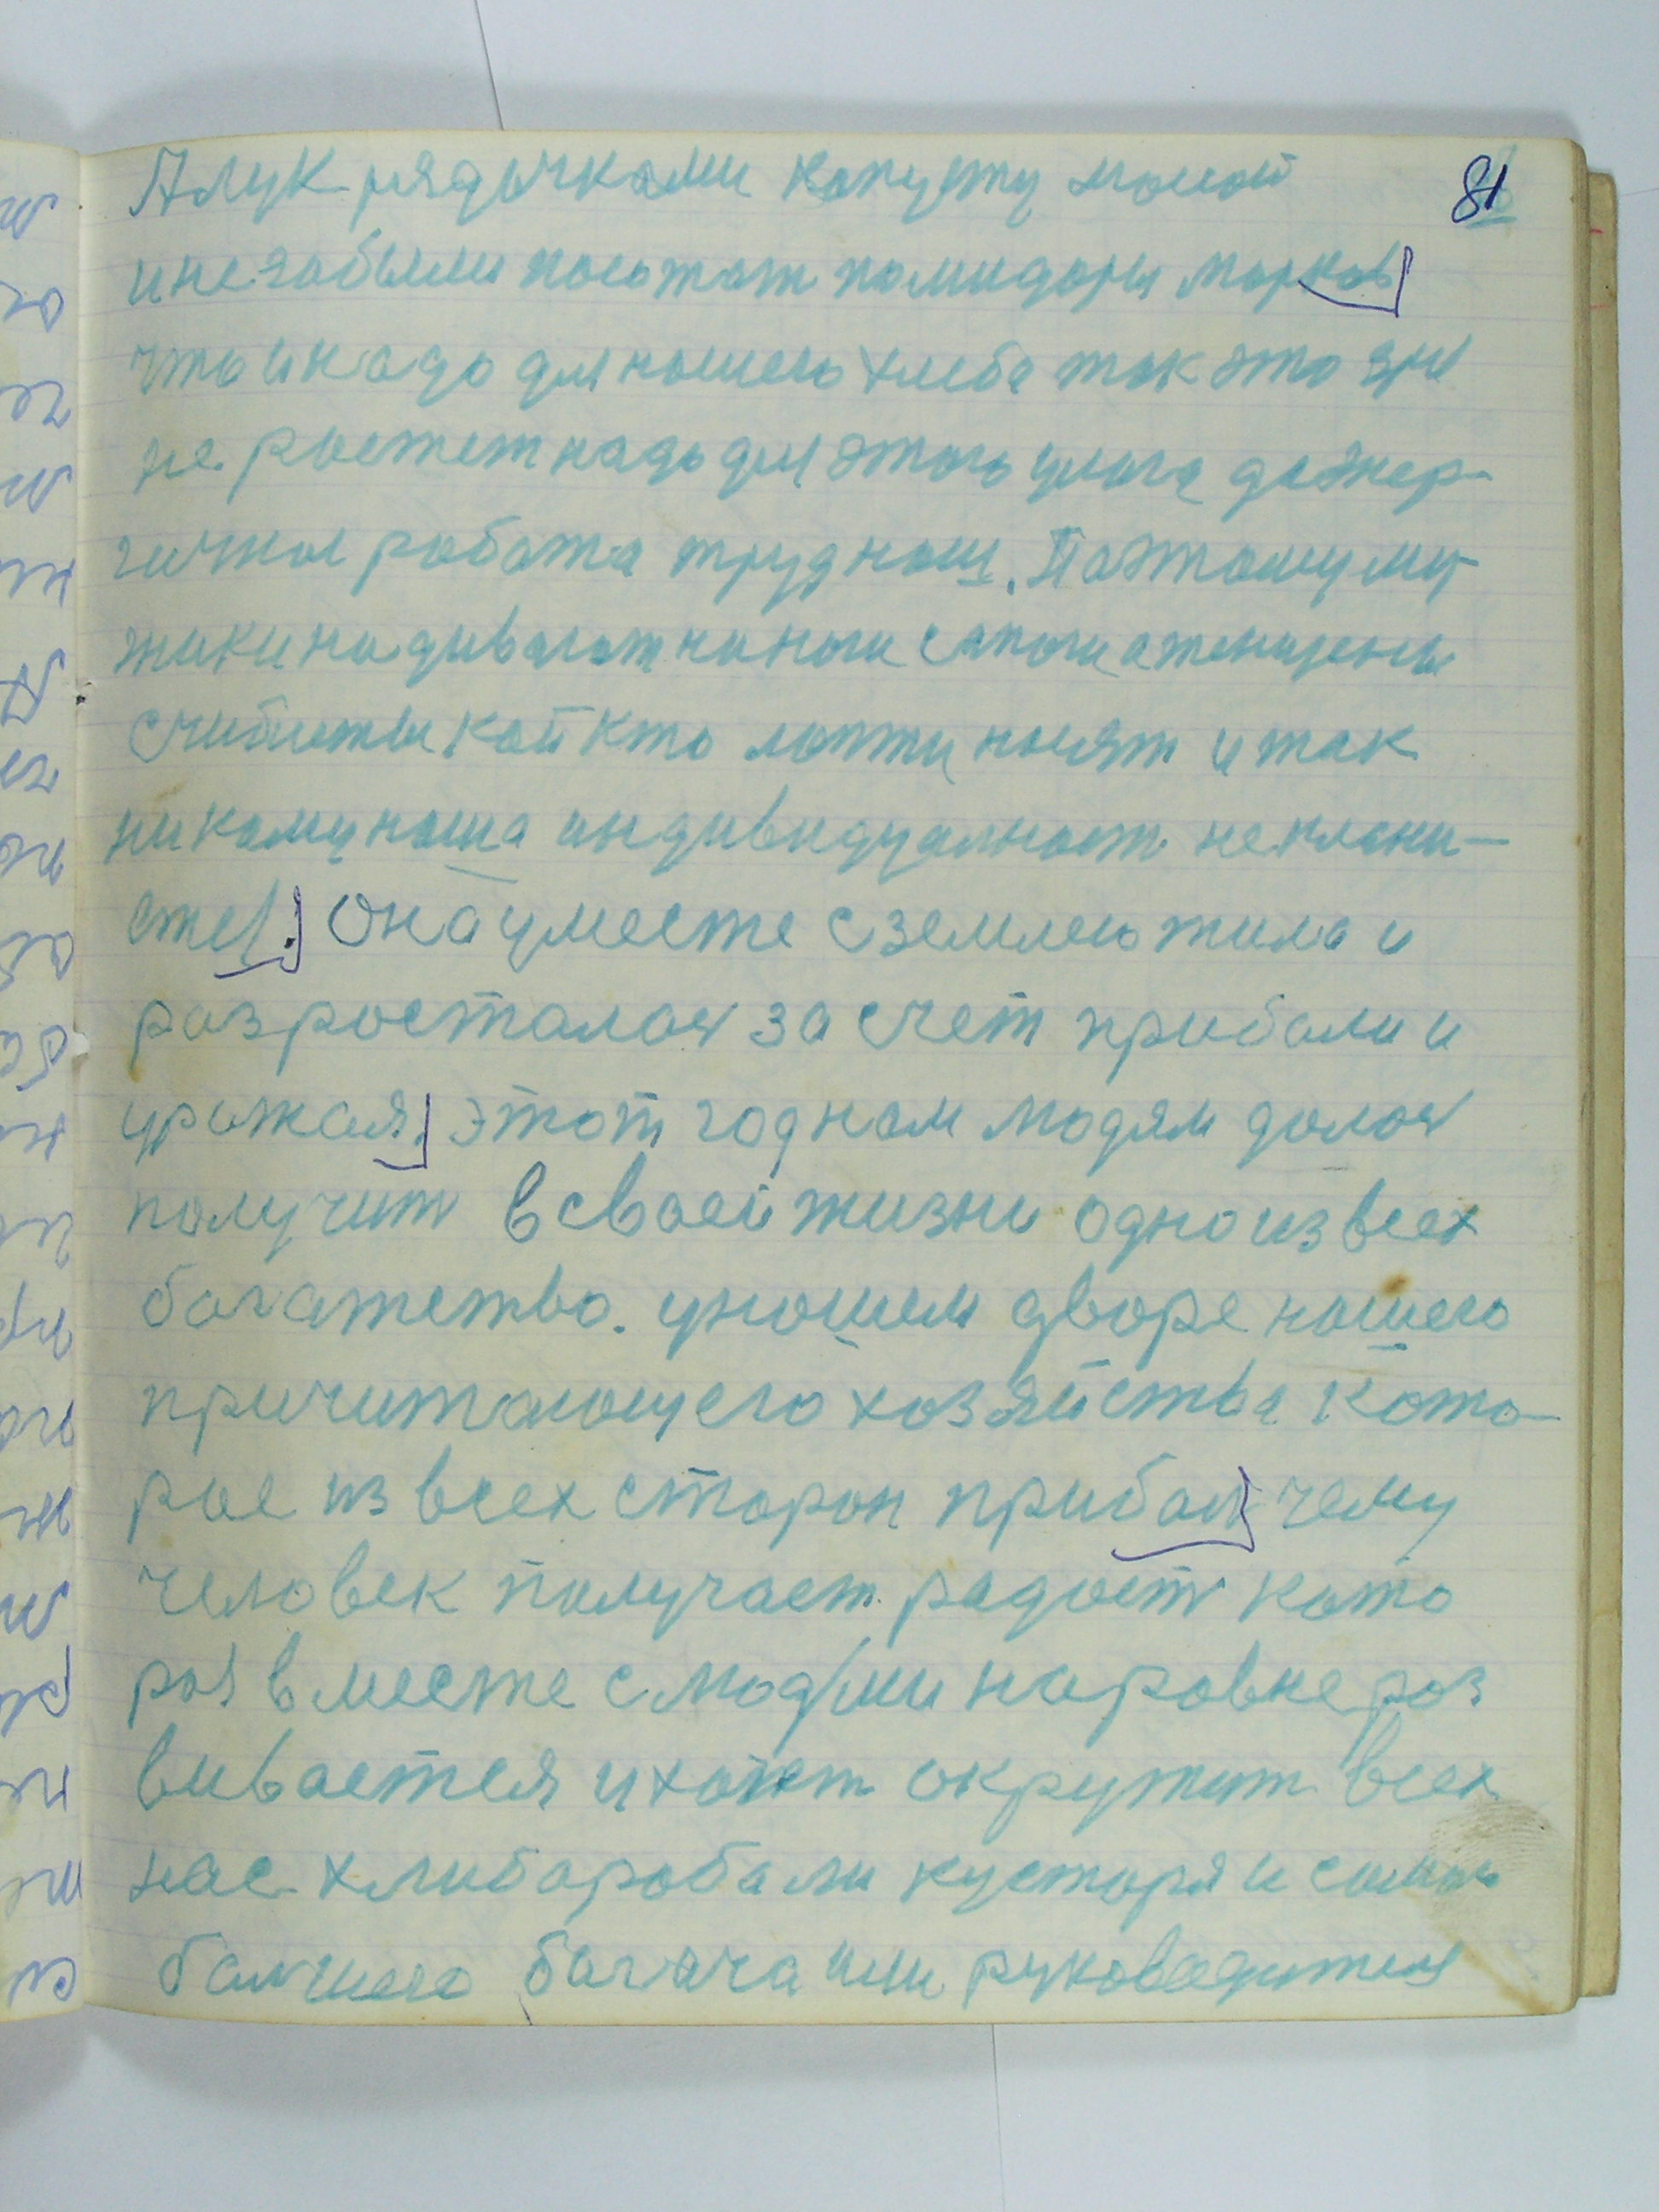 81
Алук рядычками капусту
и не забыли посажат памидоря марков
что и надо для нашего хлеба так это зря
не растет надо для этого
гичная работа трудная. Паэтому му
жики надивают на ноги сапоги а женщены
счиблеты кой кто лапти носят и так
никому наша индивидуалност не клани-
ется. Она уместе с землею жила и
разросталас за счет прибали и
уражая, этот год нам людям далос
получит в своей жизни одно из всех
багатство. у нашем дворе нашего
причитающего хозяйства кото-
рое из всех сторон прибал чему
человек получает радост кото
роя вместе с людями наровне роз
вивается и хочет окружит всех
нас хлибаробами кустаря и самого
балшего багача или руководителя